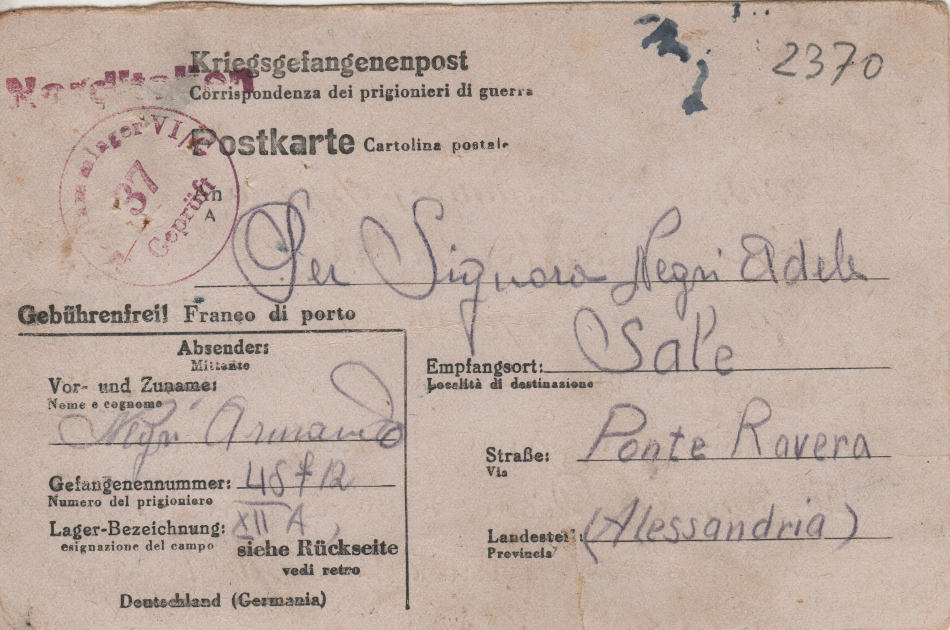 2370
Kriegsgefangenenpost
Norditalien
Corrispondenza dei prigionieri di guerra
Postkarte Cartolina postale
37
Geprüft
An
A
Per Signora Negri Adele
Gebührenfrei! Franco di porto
Absender:
Mittente
Vor- und Zuname:
Nome e cognome
Negri Armando
Gefangenennummer:
Numero del prigioniero
Lager-Bezeichnung: XII A
esignazione del campo
siehe Rückseite
vedi retro
Deutschland (Germania)
Empfangsort: Sale
Località di destinazione
Straße: Ponte Ravera
Via
Landesteil: (Alessandria)
Provincia